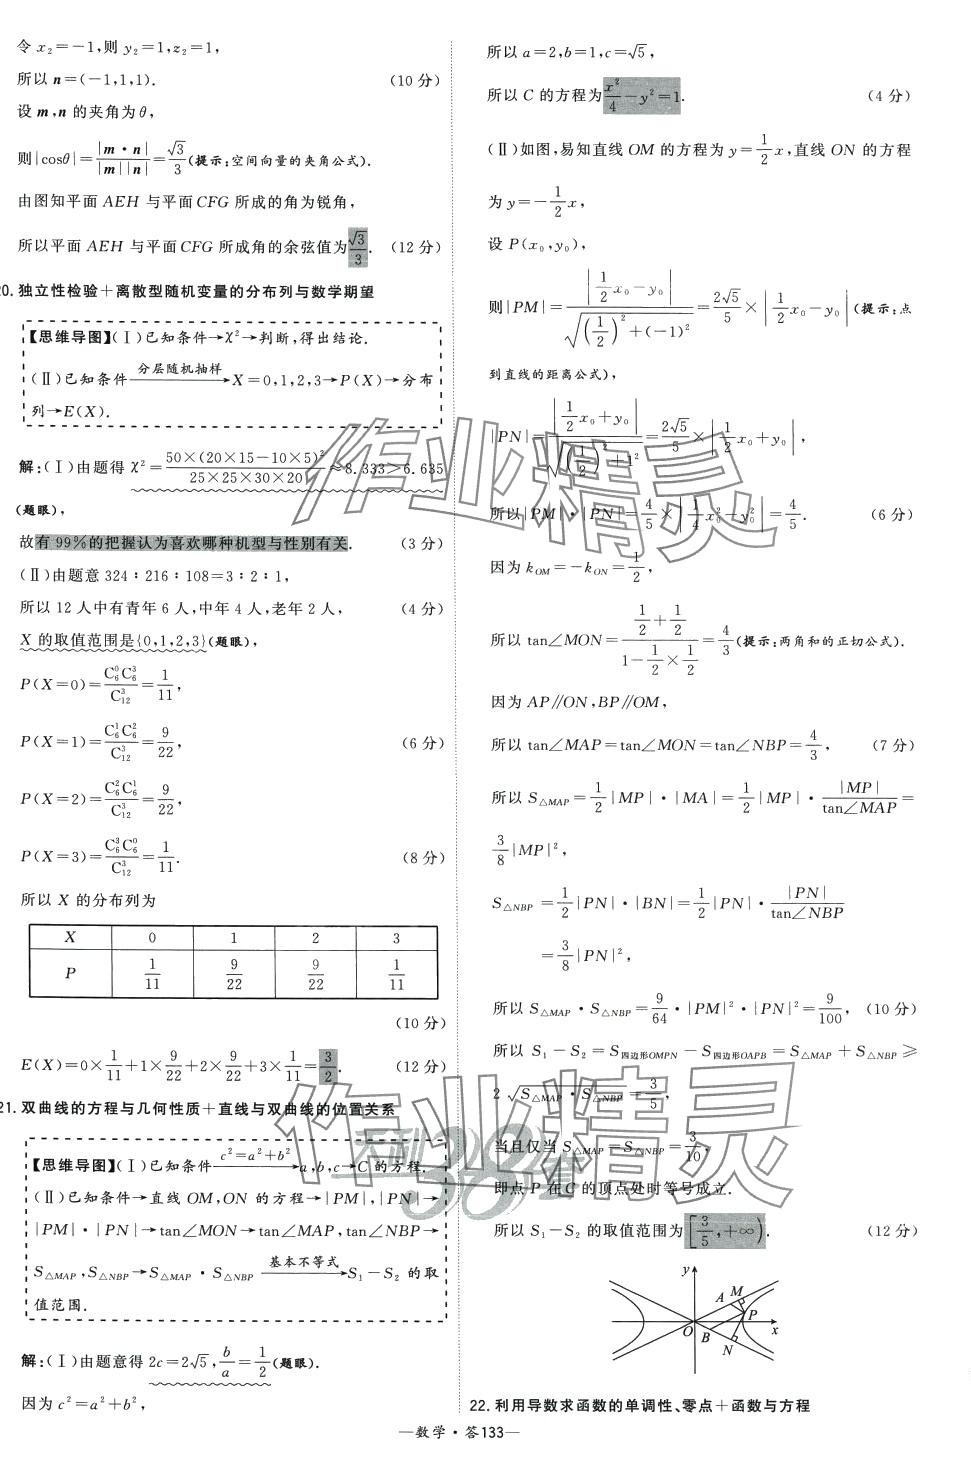 令 x₂=−1,则 y₂=1,z₂=1,
所以 n=(−1,1,1). (10 分)
设 m,n 的夹角为 θ,
则|cosθ|=|m·n|/(|m||n|)=√3/3(提示:空间向量的夹角公式).
由图知平面 AEH 与平面 CFG 所成的角为锐角,
所以平面 AEH 与平面 CFG 所成角的余弦值为√3/3. (12 分)
20. 独立性检验+离散型随机变量的分布列与数学期望
【思维导图】(Ⅰ)已知条件→χ²→判断,得出结论.
(Ⅱ)已知条件 分层随机抽样→X=0,1,2,3→P(X)→分布
列→E(X).
解:(Ⅰ)由题得 χ²=50×(20×15−10×5)²/(25×25×30×20)≈8.333>6.635
(题眼),
故有 99%的把握认为喜欢哪种机型与性别有关. (3 分)
(Ⅱ)由题意 324∶216∶108=3∶2∶1,
所以 12 人中有青年 6 人,中年 4 人,老年 2 人, (4 分)
X 的取值范围是{0,1,2,3}(题眼),
P(X=0)=C₆⁰C₆³/C₁₂³=1/11,
P(X=1)=C₆¹C₆²/C₁₂³=9/22, (6 分)
P(X=2)=C₆²C₆¹/C₁₂³=9/22,
P(X=3)=C₆³C₆⁰/C₁₂³=1/11. (8 分)
所以 X 的分布列为
X 0 1 2 3
P 1/11 9/22 9/22 1/11
(10 分)
E(X)=0×1/11+1×9/22+2×9/22+3×1/11=3/2. (12 分)
21. 双曲线的方程与几何性质+直线与双曲线的位置关系
【思维导图】(Ⅰ)已知条件 c²=a²+b²→a,b,c→C 的方程.
(Ⅱ)已知条件→直线 OM,ON 的方程→|PM|,|PN|→
|PM|·|PN|→tan∠MON→tan∠MAP,tan∠NBP→
S△MAP,S△NBP→S△MAP·S△NBP 基本不等式→S₁−S₂ 的取
值范围.
解:(Ⅰ)由题意得 2c=2√5,b/a=1/2(题眼).
因为 c²=a²+b²,
所以 a=2,b=1,c=√5,
所以 C 的方程为x²/4−y²=1. (4 分)
(Ⅱ)如图,易知直线 OM 的方程为 y=1/2x,直线 ON 的方程
为 y=−1/2x,
设 P(x₀,y₀),
则|PM|=|1/2x₀−y₀|/√((1/2)²+(−1)²)=2√5/5×|1/2x₀−y₀|(提示:点
到直线的距离公式),
|PN|=|1/2x₀+y₀|/√((1/2)²+1²)=2√5/5×|1/2x₀+y₀|,
所以|PM|·|PN|=4/5×|1/4x₀²−y₀²|=4/5. (6 分)
因为 k_OM=−k_ON=1/2,
所以 tan∠MON=(1/2+1/2)/(1−1/2×1/2)=4/3(提示:两角和的正切公式).
因为 AP∥ON,BP∥OM,
所以 tan∠MAP=tan∠MON=tan∠NBP=4/3, (7 分)
所以 S△MAP=1/2|MP|·|MA|=1/2|MP|·|MP|/tan∠MAP=
3/8|MP|²,
S△NBP=1/2|PN|·|BN|=1/2|PN|·|PN|/tan∠NBP
=3/8|PN|²,
所以 S△MAP·S△NBP=9/64·|PM|²·|PN|²=9/100, (10 分)
所以 S₁−S₂=S四边形OMPN−S四边形OAPB=S△MAP+S△NBP≥
2√(S△MAP·S△NBP)=3/5,
当且仅当 S△MAP=S△NBP=3/10,
即点 P 在 C 的顶点处时等号成立.
所以 S₁−S₂ 的取值范围为[3/5,+∞). (12 分)
y
A M
P
O B N x
22. 利用导数求函数的单调性、零点+函数与方程
—数学·答133—
作业精灵
作业精灵
天利38套